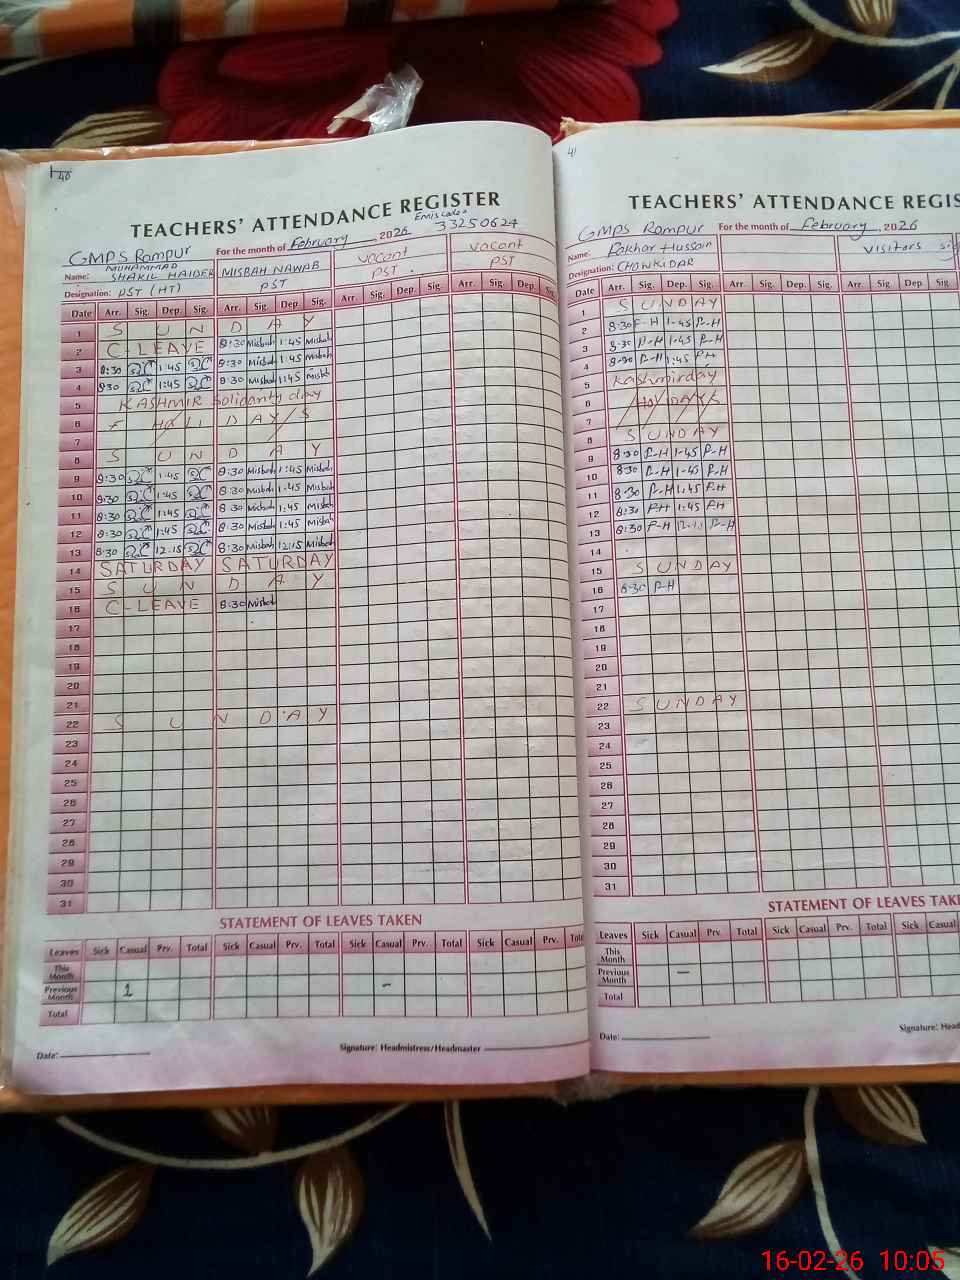 40
TEACHERS' ATTENDANCE REGISTER
Emiscode
GMPS Rampur For the month of February, 2026 33250624
Name: MUHAMMAD SHAKIL HAIDER MISBAH NAWAB vacant vacant
Designation: PST (HT) PST PST PST
Date Arr. Sig. Dep. Sig. Arr. Sig. Dep. Sig. Arr. Sig. Dep. Sig. Arr. Sig. Dep. Sig.
1 S U N D A Y
2 C-LEAVE 8:30 Misbah 1:45 Misbah
3 8:30 1:45 8:30 Misbah 1:45 Misbah
4 8:30 1:45 8:30 Misbah 1:45 Misbah
5 KASHMIR Solidarity day
6 HOLIDAY/S
7
8 S U N D A Y
9 8:30 1:45 8:30 Misbah 1:45 Misbah
10 8:30 1:45 8:30 Misbah 1:45 Misbah
11 8:30 1:45 8:30 Misbah 1:45 Misbah
12 8:30 1:45 8:30 Misbah 1:45 Misbah
13 8:30 12:15 8:30 Misbah 12:15 Misbah
14 SATURDAY SATURDAY
15 S U N D A Y
16 C-LEAVE 8:30 Misbah
17
18
19
20
21
22 S U N D A Y
23
24
25
26
27
28
29
30
31
STATEMENT OF LEAVES TAKEN
Leaves Sick Casual Prv. Total Sick Casual Prv. Total Sick Casual Prv. Total Sick Casual Prv. Total
This Month
Previous Month 1 -
Total
Date: Signature: Headmistress/Headmaster
41
TEACHERS' ATTENDANCE REGIS
GMPS Rampur For the month of February, 2026
Name: Pokhar Hussain visitors
Designation: CHOWKIDAR
Date Arr. Sig. Dep. Sig. Arr. Sig. Dep. Sig. Arr. Sig. Dep.
1 S U N D A Y
2 8:30 P-H 1-45 P-H
3 8:30 P-H 1-45 P-H
4 8:30 P-H 1:45 P-H
5 Kashmirday
6 HOLIDAY/S
7
8 S U N D A Y
9 8:30 P-H 1-45 P-H
10 8:30 P-H 1-45 P-H
11 8:30 P-H 1:45 P-H
12 8:30 P-H 1:45 P-H
13 8:30 P-H P-H
14
15 S U N D A Y
16 8:30 P-H
17
18
19
20
21
22 S U N D A Y
23
24
25
26
27
28
29
30
31
STATEMENT OF LEAVES TAKE
Leaves Sick Casual Prv. Total Sick Casual Prv. Total Sick Casual
This Month
Previous Month -
Total
Date: Signature: Head
16-02-26 10:05